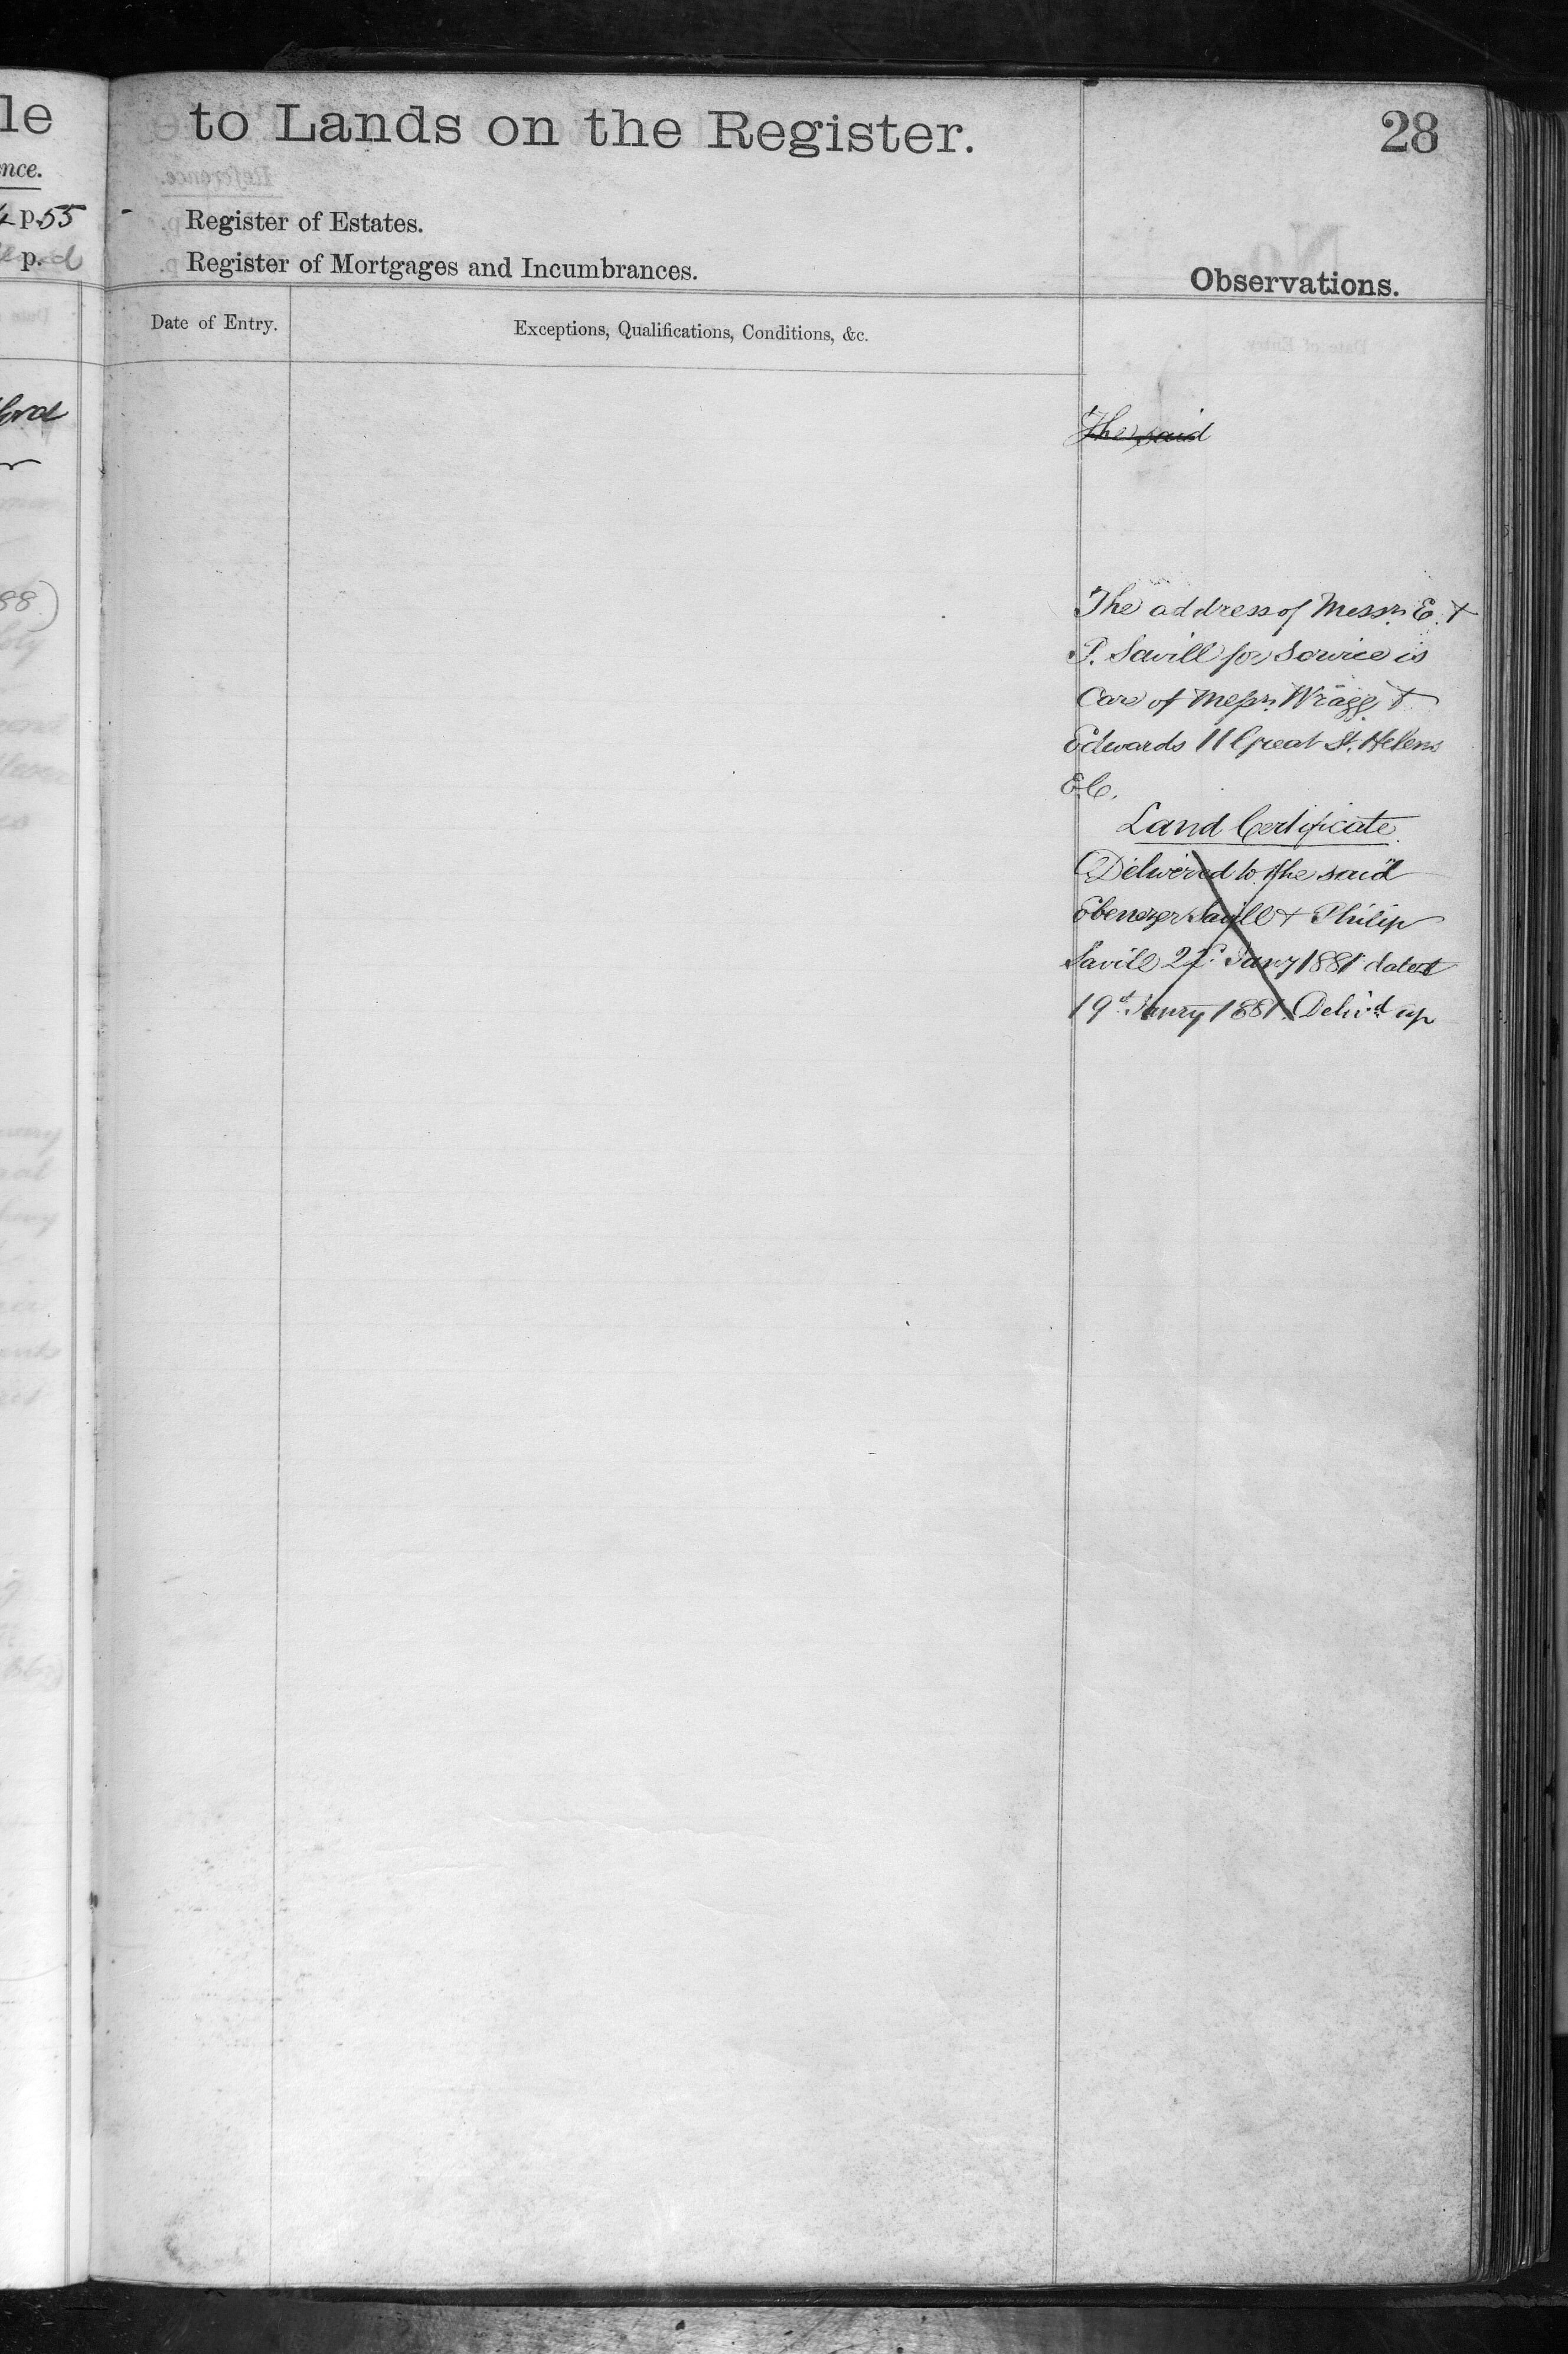 le
to Lands on the Register.
28
nce.
p. 55
Register of Estates.
p.
Register of Mortgages and Incumbrances.
Observations.
Date of Entry.
Exceptions, Qualifications, Conditions, &c.
The said
The address of Messrs. E. &
P. Savill for service is
Care of Messrs. Wragg &
Edwards 11 Great St. Helens
E.C.
Land Certificate.
Delivered to the said
Ebenezer Savill & Philip
Savill Janry 1881 dated
19th Janry 1881. Deliv.d up